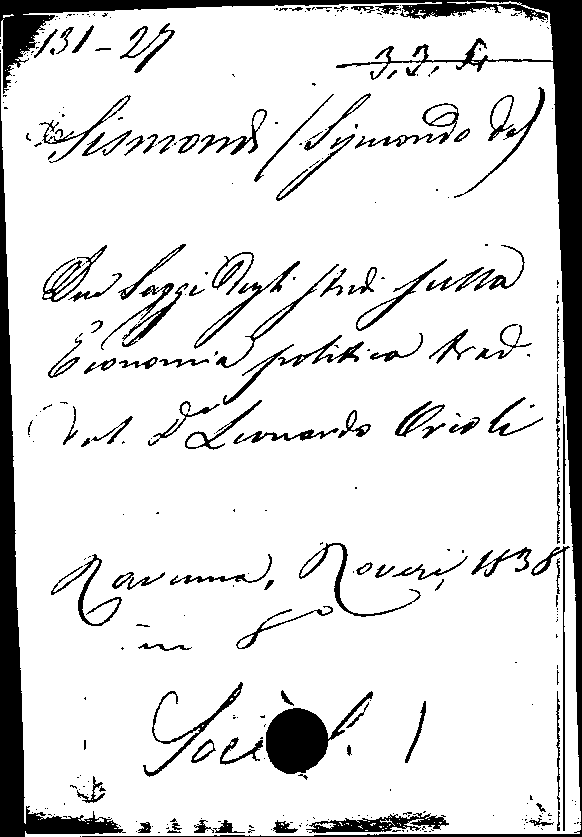 131-27
3, 3, 5,
Sismondi (Sismondo de)
Due Saggi degli studi sulla
Economia politica trad.
dal Dr Leonardo Orioli
Ravenna, Roveri, 1838
in 8°
1